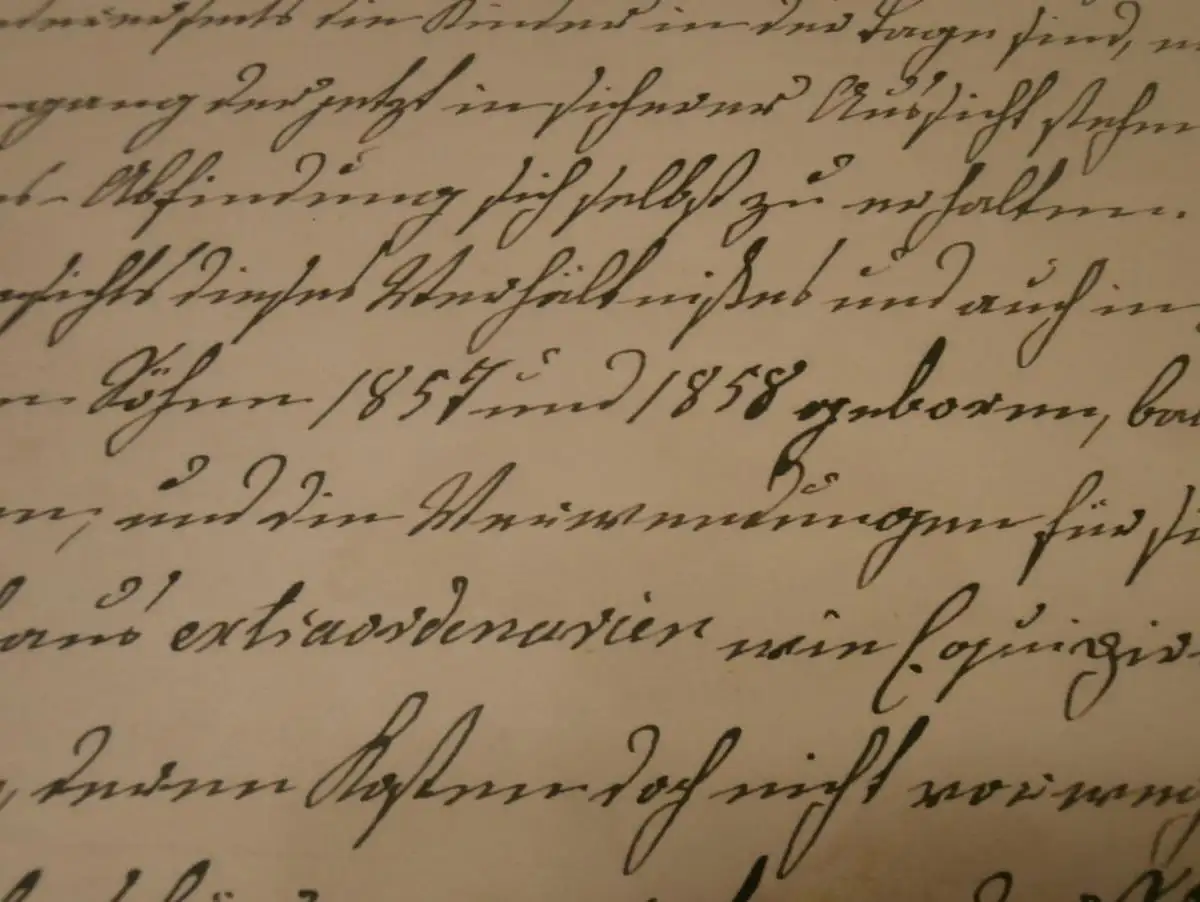 die Kinder in der Lage sind,
gang der jetzt in sicherer Aussicht stehen
Abfindung sich selbst zu erhalten.
sichts dieses Verhältnißes und auch in
Söhne 1857 und 1858 geboren,
und die Verwendungen für
aus extraordenarien wie Equipir-
deren Kosten doch nicht vorweg